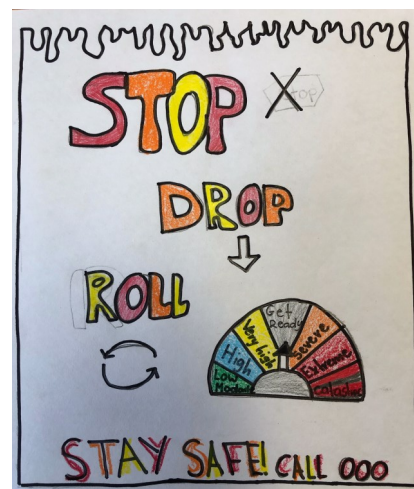 STOP
Stop
DROP
ROLL
Low Moderate
High
Very high
Get Ready
Severe
Extreme
STAY SAFE! CALL 000